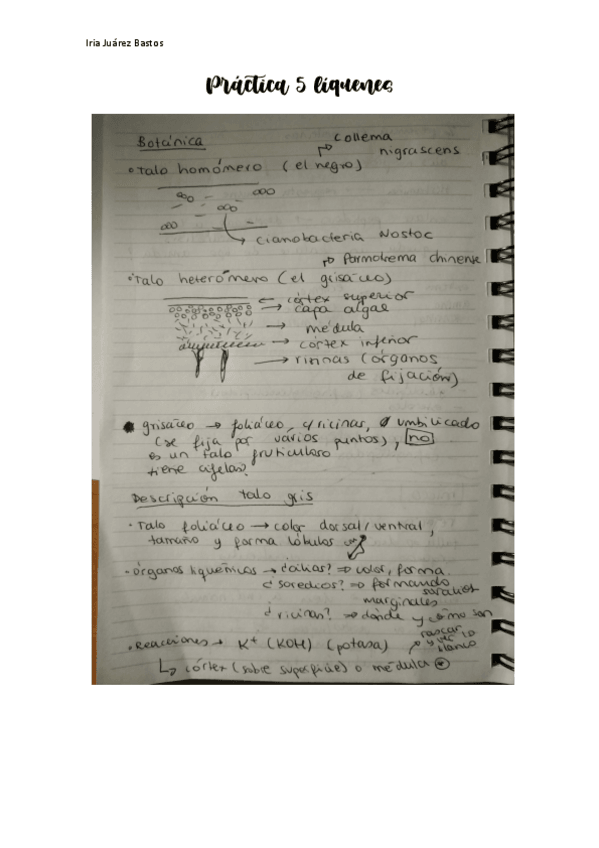 Iria Juárez Bastos
Práctica 5 líquenes
Botánica
Collema
nigrascens
• Talo homómero (el negro)
cianobacteria Nostoc
Parmotrema chinense
• Talo heterómero (el grisáceo)
córtex superior
capa algae
médula
córtex inferior
(órganos
de fijación)
grisáceo → foliáceo, c/ricinas, umbilicado
(se fija por varios puntos), no
es un talo fruticuloso
tiene cifelas?
Descripción talo gris
• Talo foliáceo → color dorsal/ventral,
tamaño y forma lóbulos
• órganos liquénicos → ¿cilias? ⇒ color, forma
¿soredios? ⇒ formando
soralios
marginales
¿ricinas? ⇒ dónde y cómo son
rascar
y ver lo
blanco
• Reacciones → K+ (KOH) (potasa)
córtex (sobre superficie) o médula